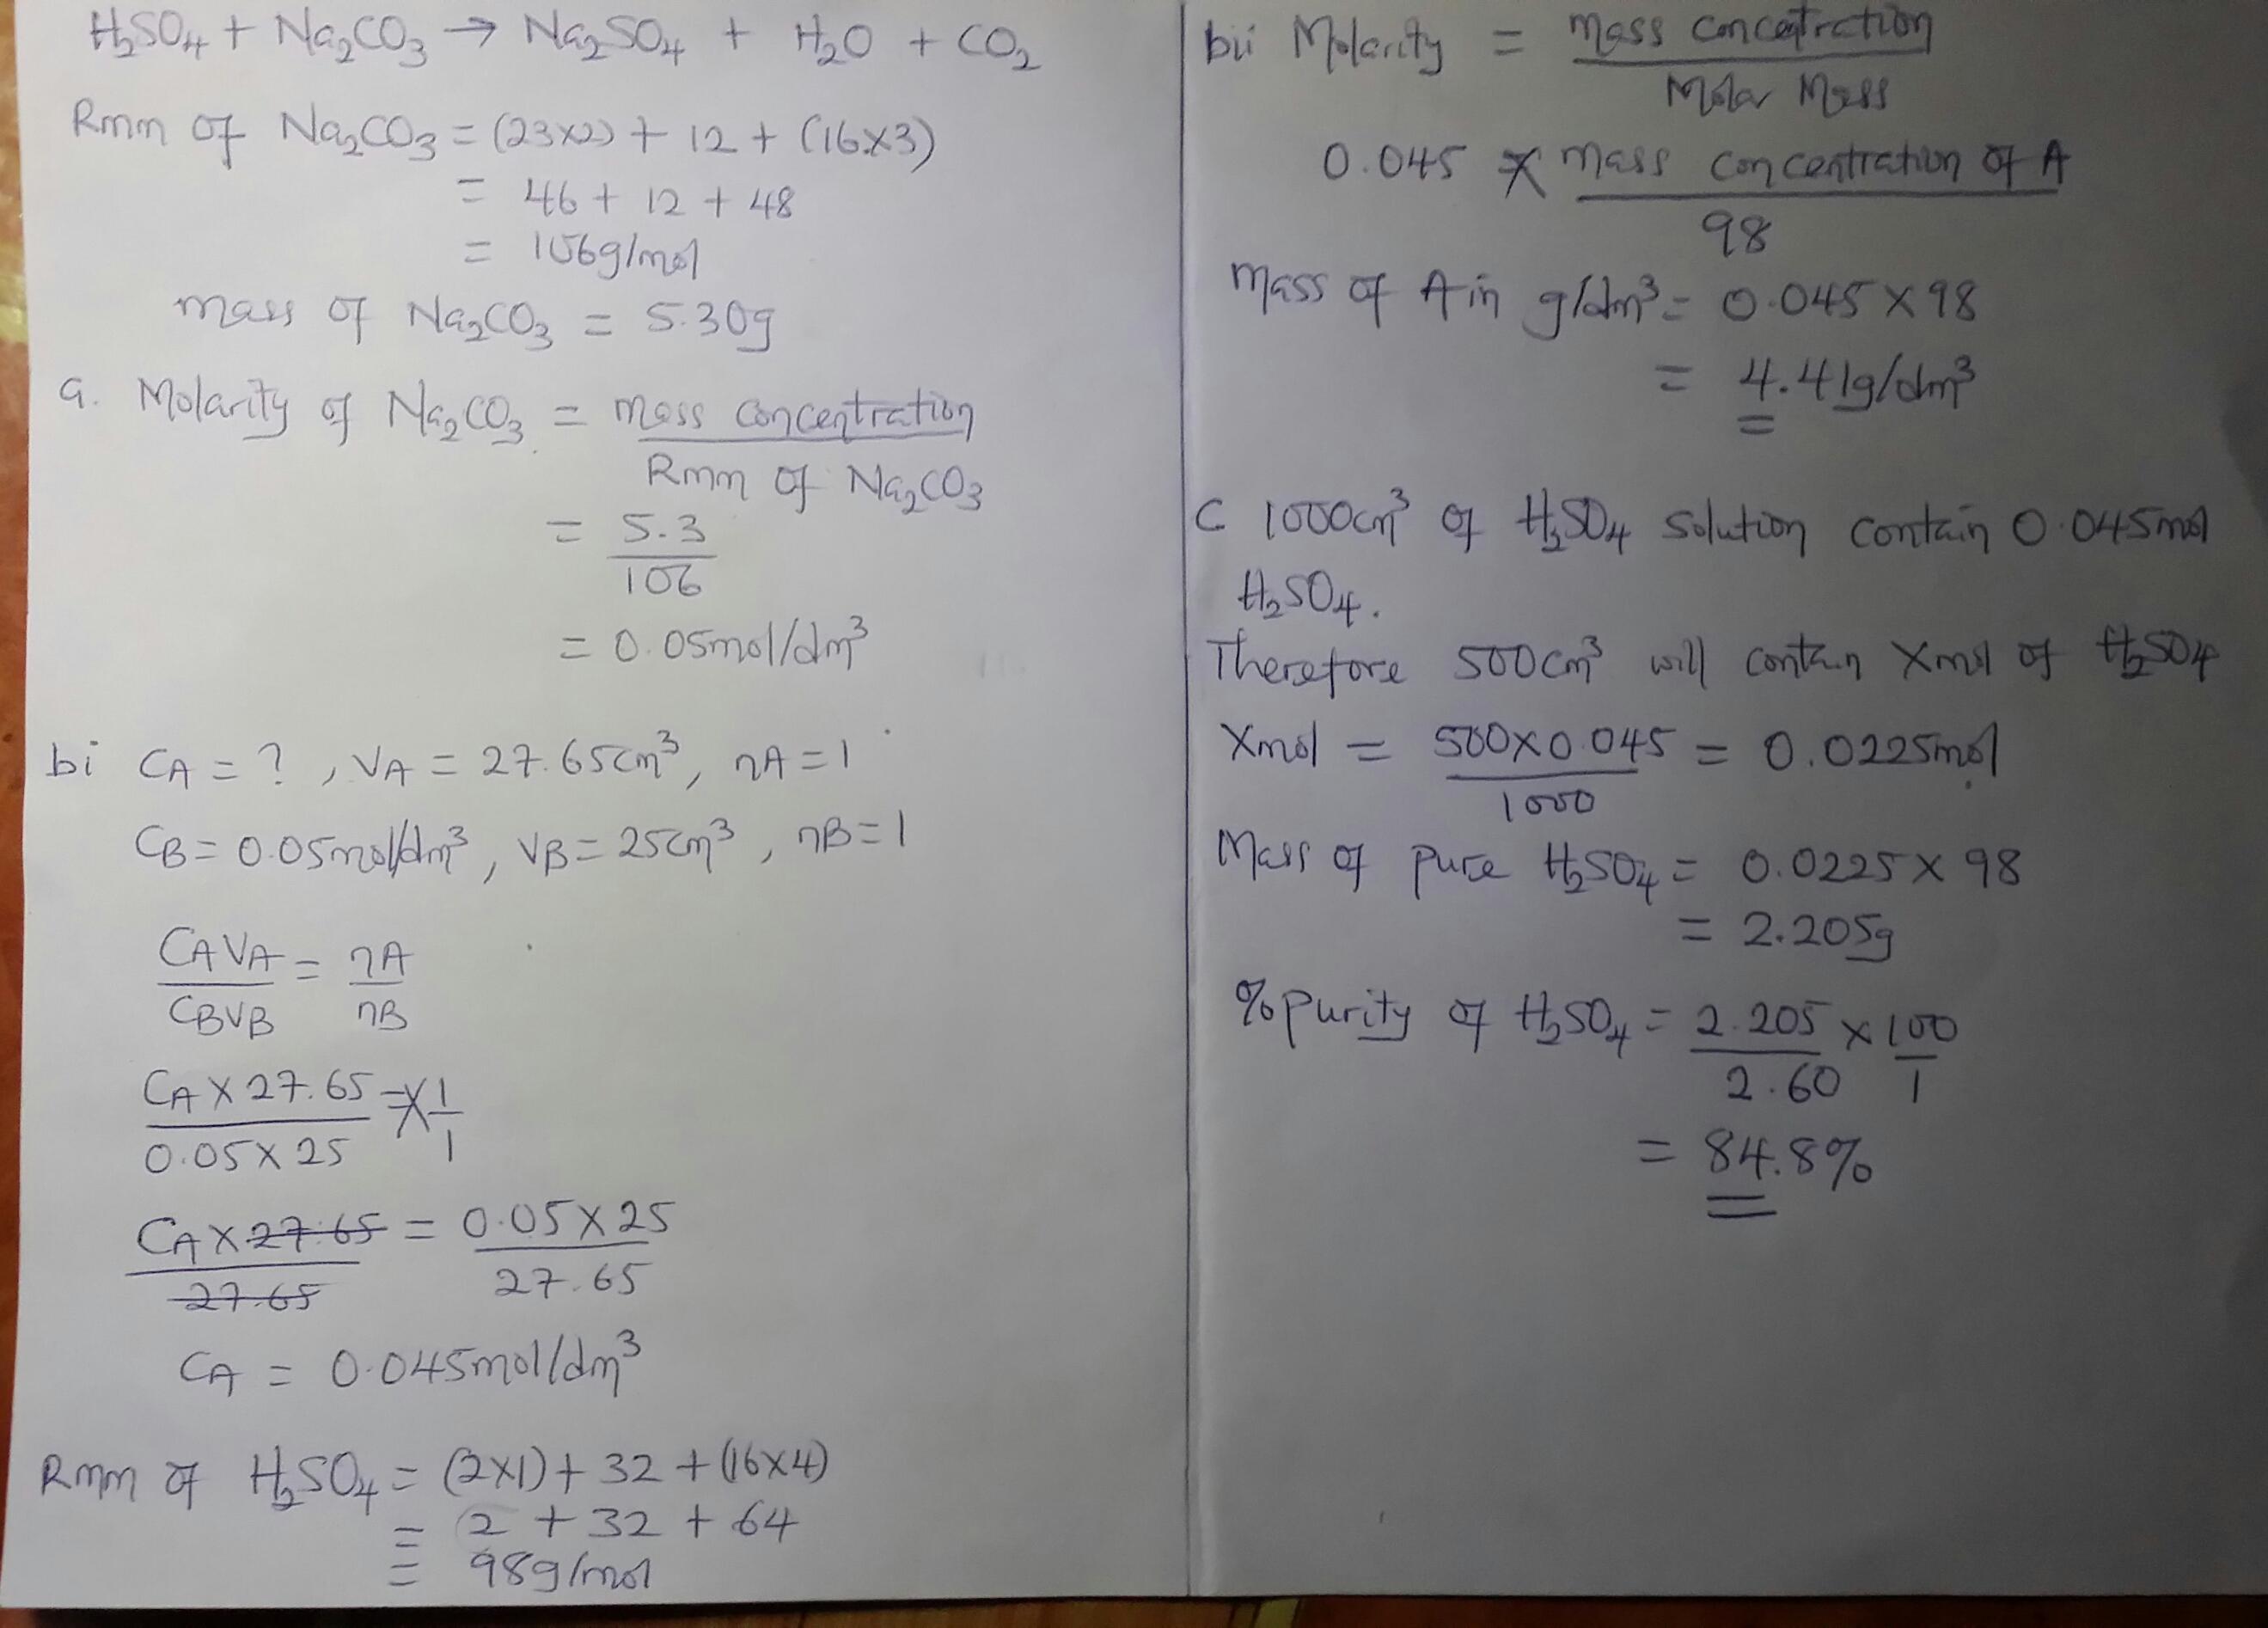 H₂SO₄ + Na₂CO₃ → Na₂SO₄ + H₂O + CO₂
Rmm of Na₂CO₃ = (23x2) + 12 + (16x3)
= 46 + 12 + 48
= 106g/mol
mass of Na₂CO₃ = 5.30g
a. Molarity of Na₂CO₃ = mass concentration
Rmm of Na₂CO₃
= 5.3
106
= 0.05mol/dm³
bi CA = ? , VA = 27.65cm³, nA = 1
CB = 0.05mol/dm³, VB = 25cm³, nB = 1
CAVA = nA
CBVB nB
CA X 27.65 = X 1
0.05 X 25 1
CA X 27.65 = 0.05 X 25
27.65 27.65
CA = 0.045mol/dm³
Rmm of H₂SO₄ = (2x1) + 32 + (16x4)
= 2 + 32 + 64
= 98g/mol
bii Molarity = mass concentration
Molar Mass
0.045 = mass concentration of A
98
mass of A in g/dm³ = 0.045 X 98
= 4.41g/dm³
C 1000cm³ of H₂SO₄ solution contain 0.045mol
H₂SO₄.
Therefore 500cm³ will contain Xmol of H₂SO₄
Xmol = 500 X 0.045 = 0.0225mol
1000
Mass of pure H₂SO₄ = 0.0225 X 98
= 2.205g
% purity of H₂SO₄ = 2.205 x 100
2.60 1
= 84.8%